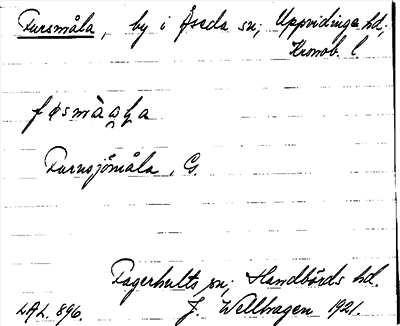 Fursmåla, by i Åseda sn; Uppvidinge hd;
Kronob. l
Furusjömåla, G.
Fagerhults sn; Handbörds hd.
LAL. 896. J. Wellhagen 1921.